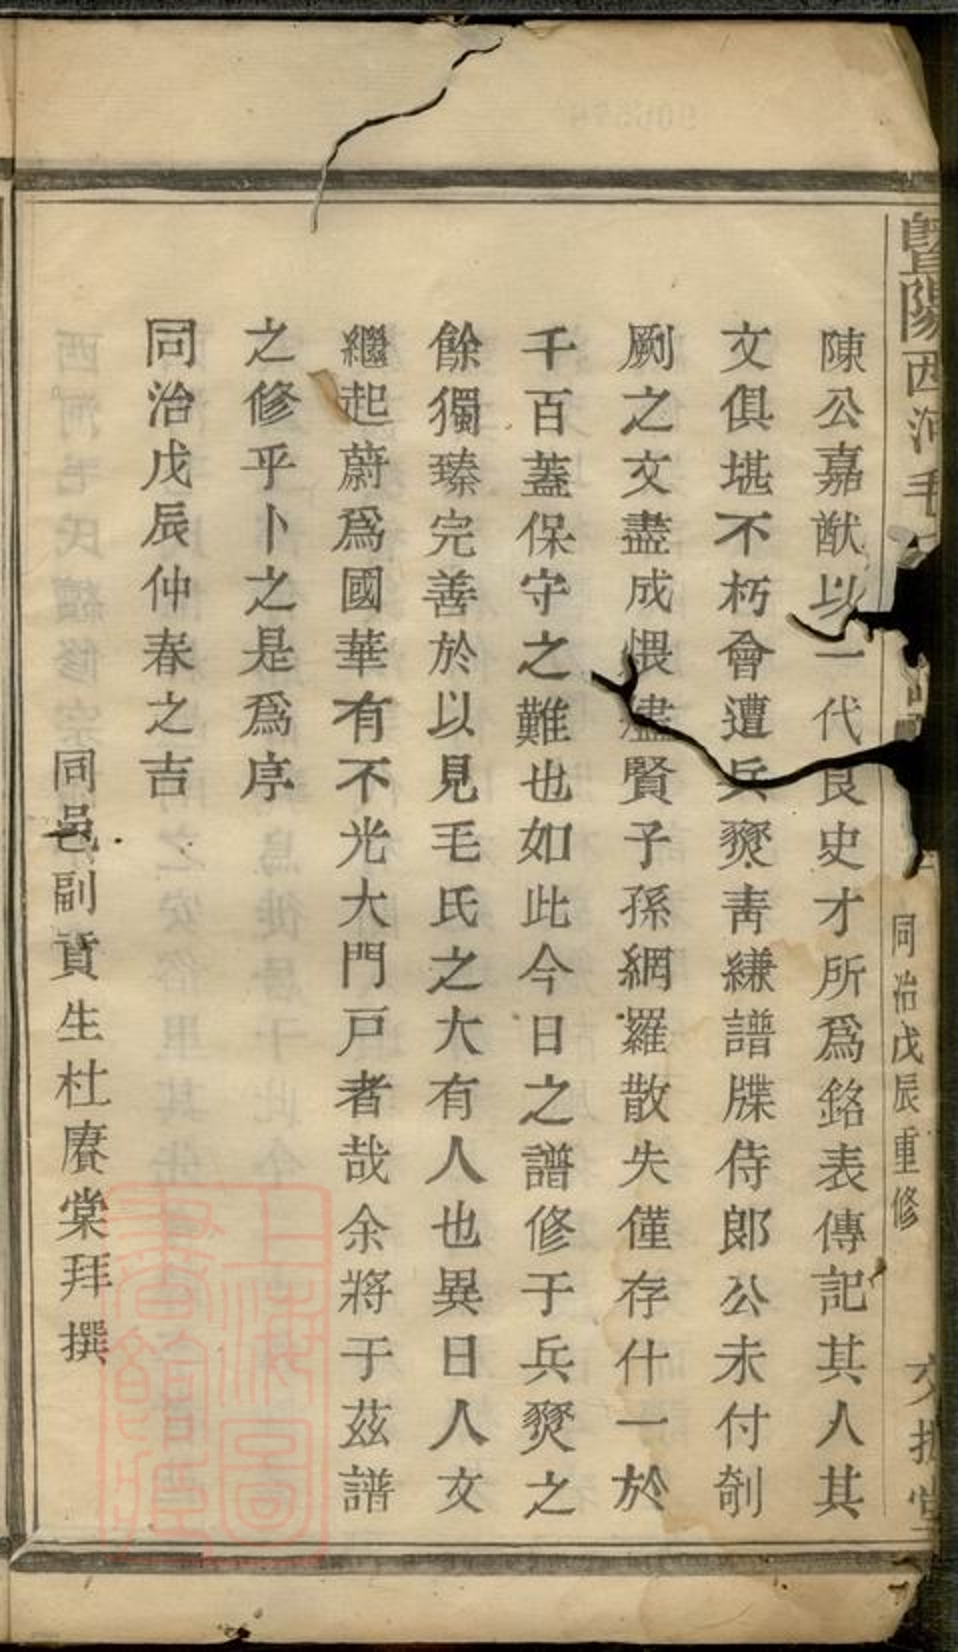 暨陽西河毛
同治戊辰重修
陳公嘉猷以一代良史才所爲銘表傳記其人其
文俱堪不朽會遭兵燹靑縑譜牒侍郞公未付剞
劂之文盡成煨燼賢子孫網羅散失僅存什一於
千百蓋保守之難也如此今日之譜修于兵燹之
餘獨臻完善於以見毛氏之大有人也異日人文
繼起蔚爲國華有不光大門戸者哉余將于茲譜
之修乎卜之是爲序
同治戊辰仲春之吉
同邑副貢生杜賡棠拜撰
上海圖書館藏